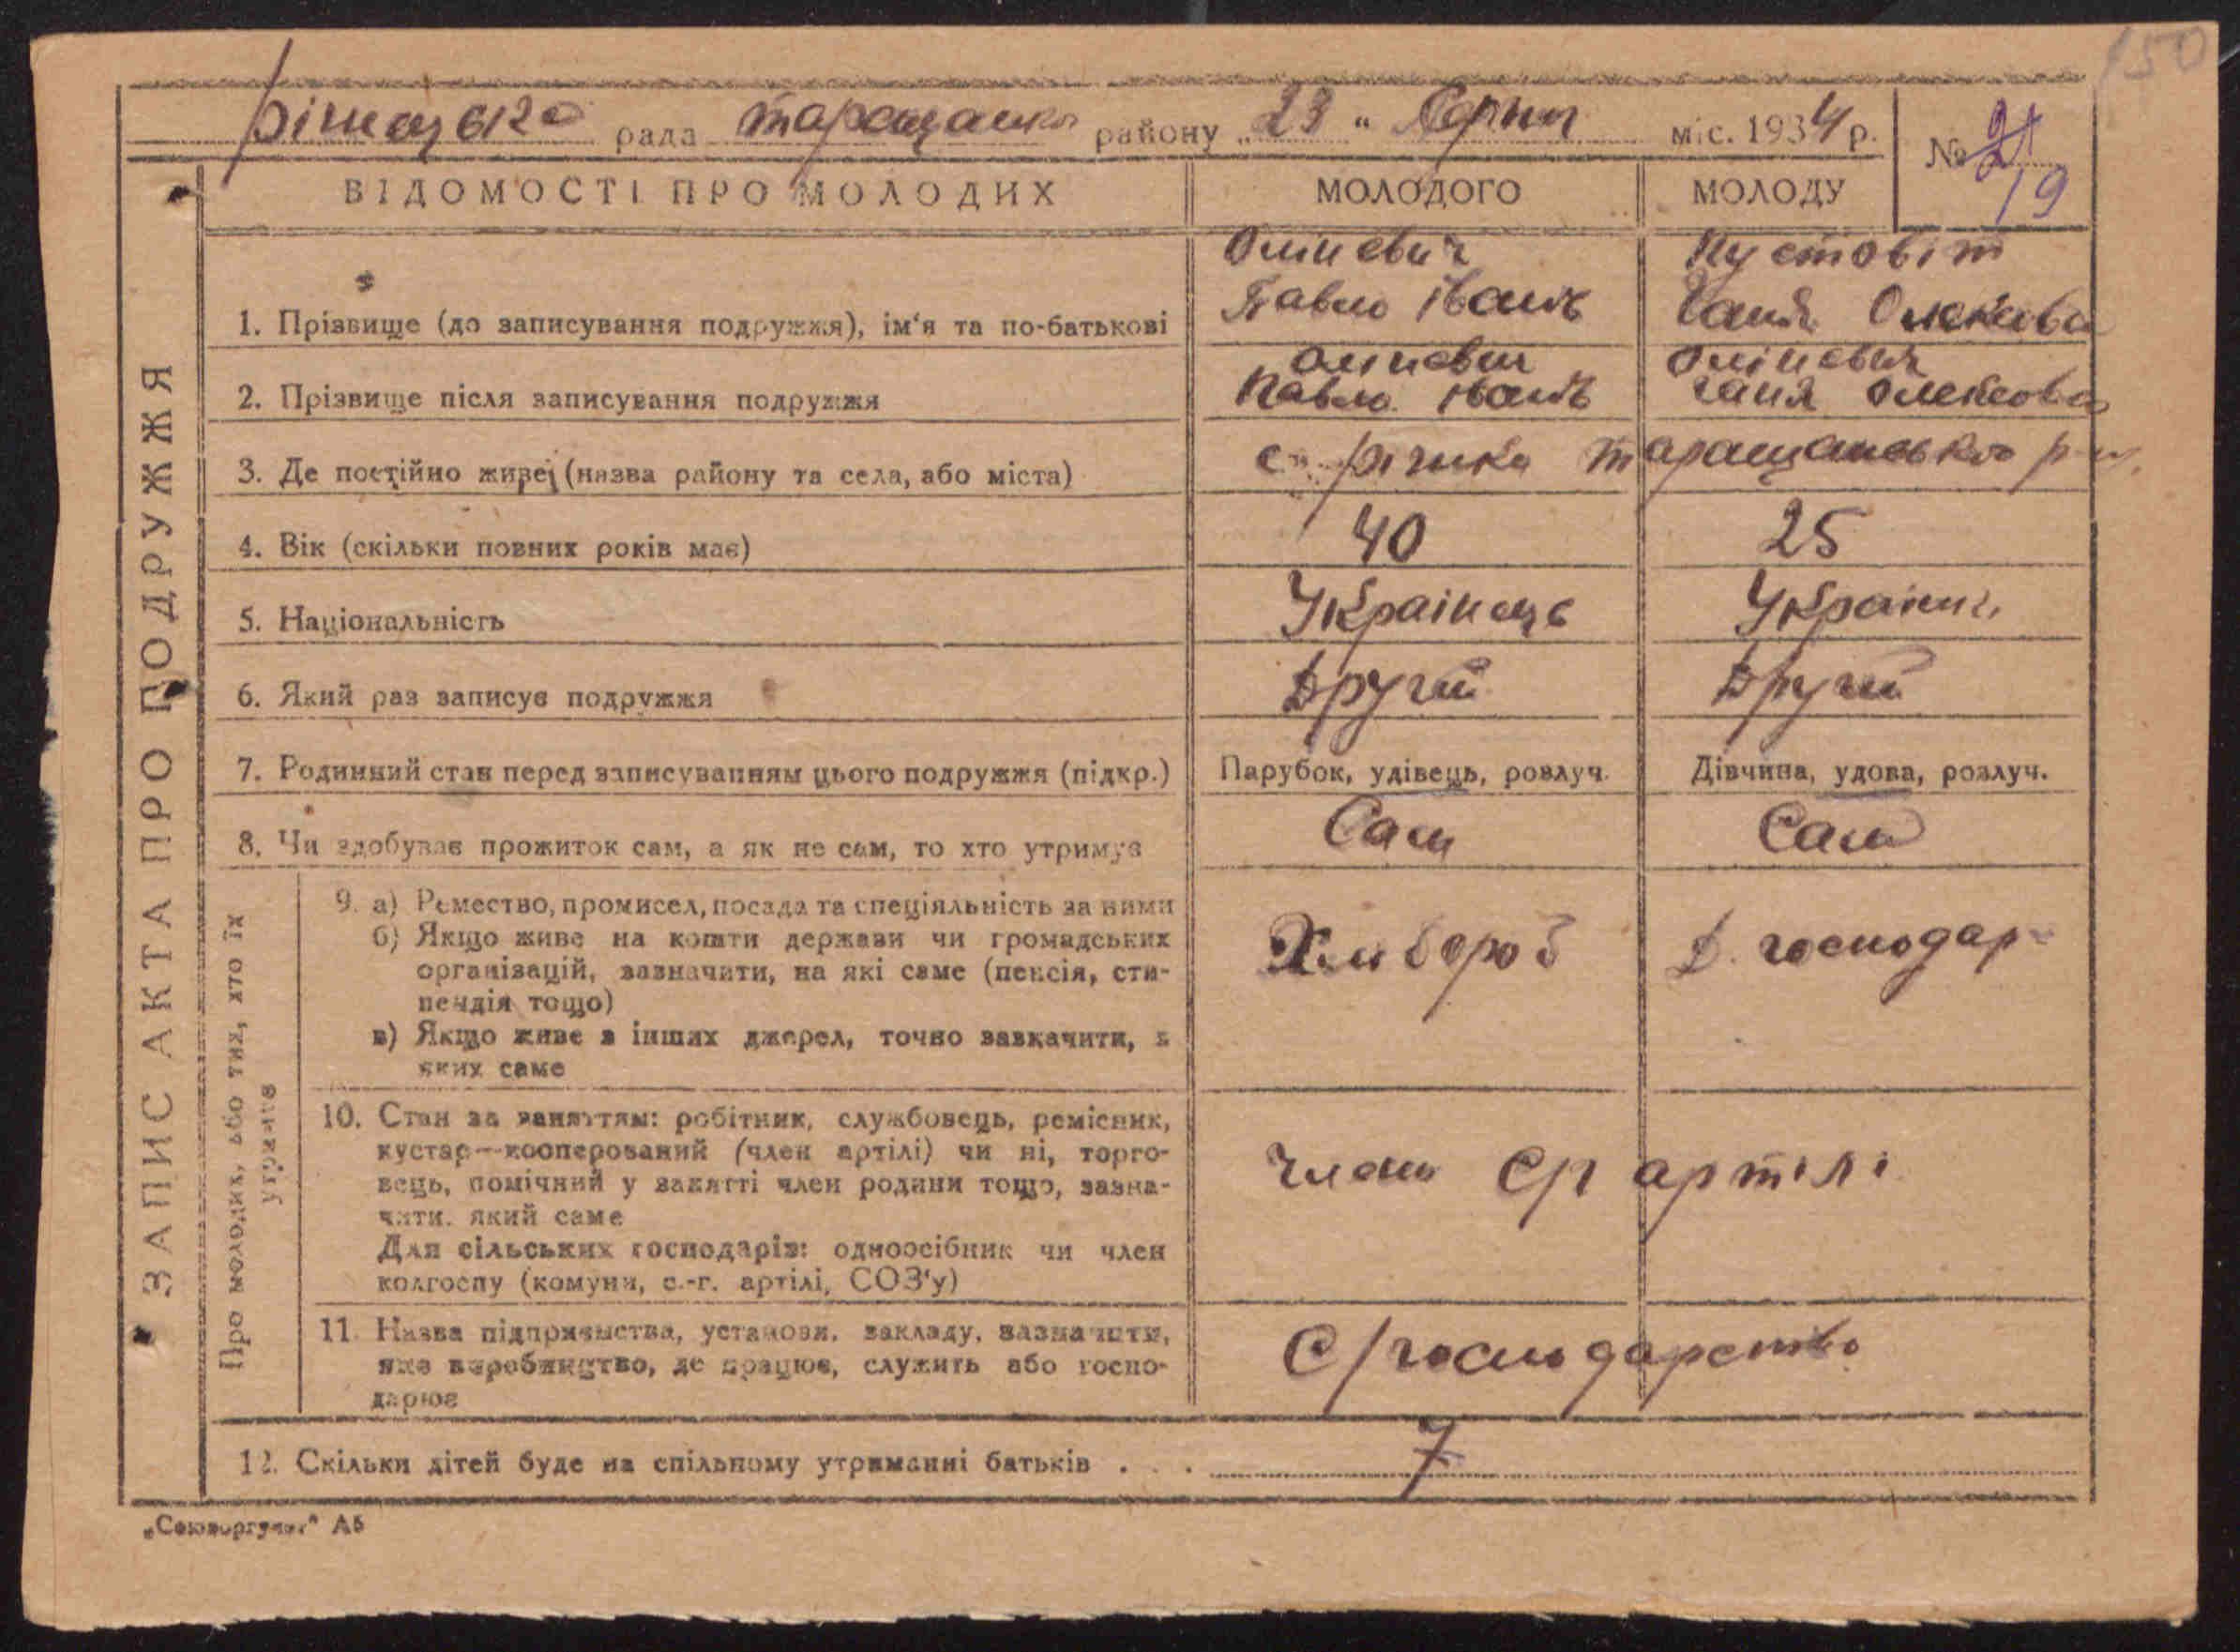 150
рада району „ 23 " Серпн міс. 1934 р.
№ 21
19
ВІДОМОСТІ ПРО МОЛОДИХ МОЛОДОГО МОЛОДУ
ЗАПИС АКТА ПРО ПОДРУЖЖЯ
1. Прізвище (до записування подружжя), ім'я та по-батькові
Пустовіт
Павло
Ганя
2. Прізвище після записування подружжя
Павло
Ганя
3. Де постійно живе (назва району та села, або міста)
с.
4. Вік (скільки повних років має) 40 25
5. Національність Українець
6. Який раз записує подружжя Другий Другий
7. Родинний стан перед записуванням цього подружжя (підкр.) Парубок, удівець, розлуч. Дівчина, удова, розлуч.
8. Чи здобуває прожиток сам, а як не сам, то хто утримує Сам Сама
Про молодих, або тих, хто їх
утримує
9. а) Ремество, промисел, посада та спеціяльність за ними
б) Якщо живе на кошти держави чи громадських
організацій, зазначити, на які саме (пенсія, сти-
пендія тощо)
в) Якщо живе з інших джерел, точно зазначити, з
яких саме
Хлибороб Д. господар
10. Стан за заняттям: робітник, службовець, ремісник,
кустар—кооперований (член артілі) чи ні, торго-
вець, помічний у занятті член родини тощо, зазна-
чити. який саме
Для сільських господарів: одноосібник чи член
колгоспу (комуни, с.-г. артілі, СОЗ'у)
член артілі
11. Назва підприємства, установи, закладу, зазначити,
яке виробництво, де працює, служить або госпо-
дарює
С/господарство
12. Скільки дітей буде на спільному утриманні батьків . . . 7